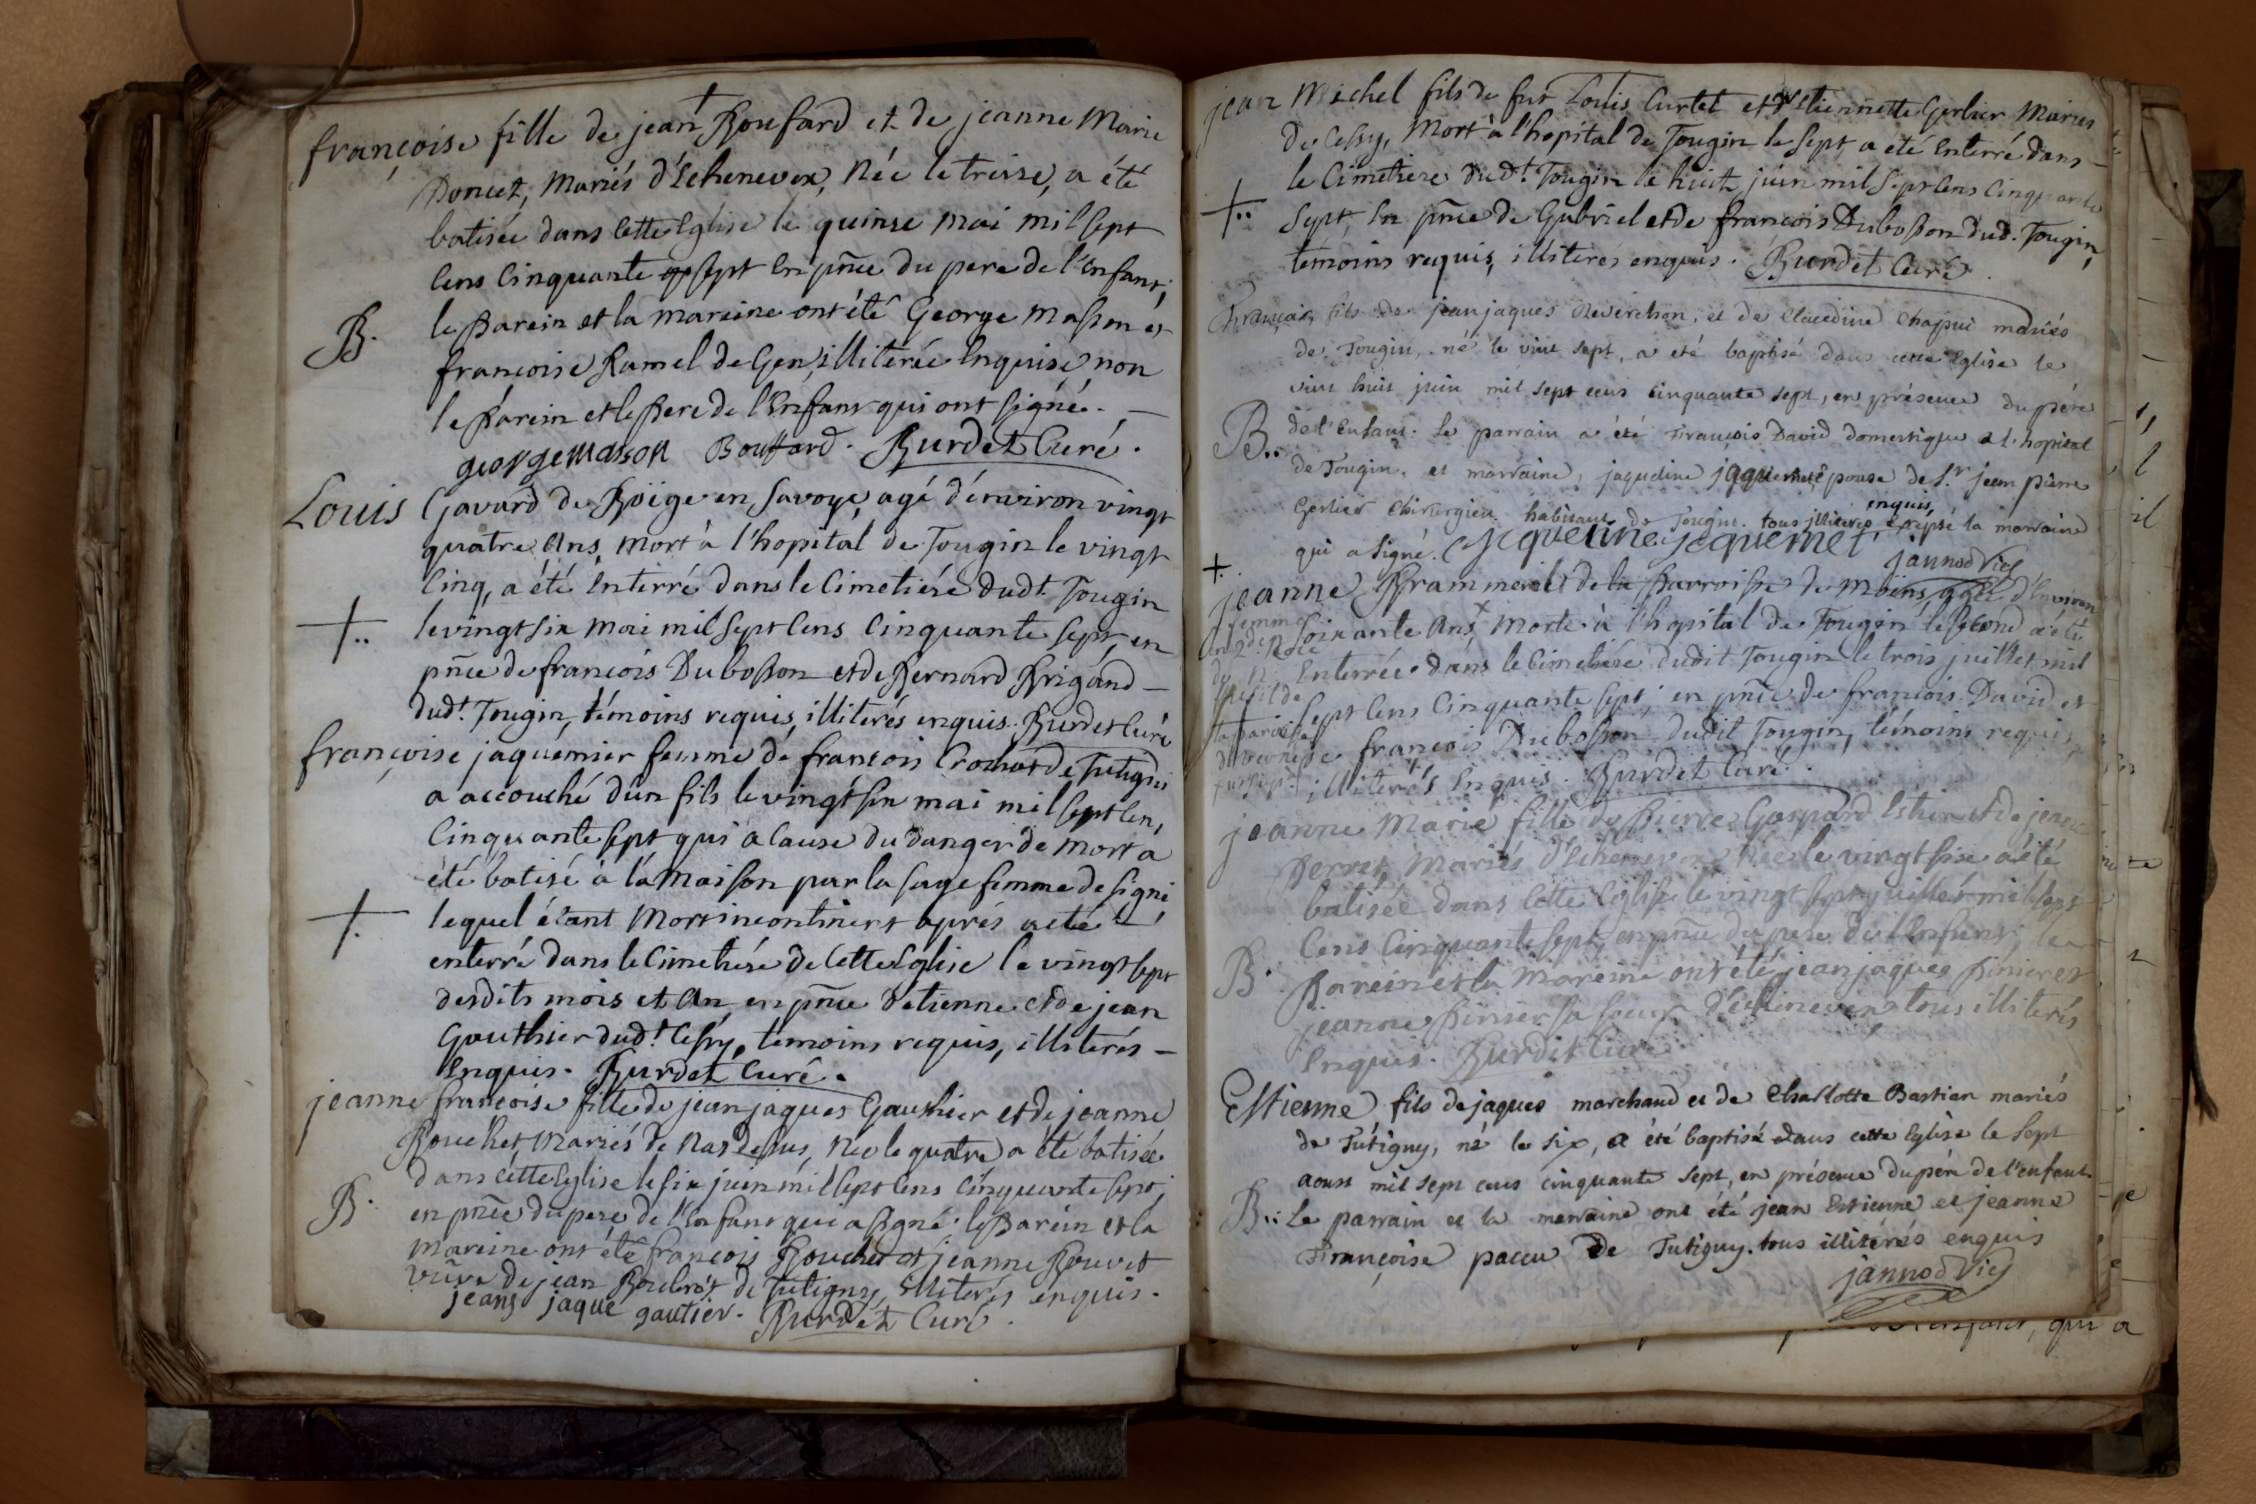 françoise fille de jean Boufard et de jeanne Marie
Doncet, Mariés d'Echenevex, Née le treise, a été
batisée dans cette Eglise le quinse mai mil sept
Cens Cinquante sept En pñce du pere de l'Enfant;
B. le Parein et la mareine ont été George Masson et
francoise Ramel de Gex, illiterée Enquise, non
le Parein et le Pere de l'Enfant qui ont signé. —
george masson Bouffard. Burdet Curé.
Louis Gavard de Böige en Savoye, agé d'environ vingt
quatre Ans, mort à l'hopital de Tougin le vingt
Cinq, a été Enterré dans le Cimetiére dudt. Tougin
le vingt six mai mil sept Cens Cinquante sept, en
pñce de francois Dubosson et de Bernard Brigand —
dudt. Tougin, témoins requis, illiterés enquis. Burdet Curé
françoise jaquemier femme de francois Crochat de Tutigni
a accouché d'un fils le vingt six mai mil sept Cens
Cinquante sept qui a Cause du danger de mort a
été batisé à la Maison par la sage femme de signi,
lequel étant Mort incontinent aprés a été
enterré dans le Cimetiére de Cette Eglise le vingt sept
desdits mois et An, en pñce d'etienne et de jean
Gauthier dudt. Cessy, temoins requis, illiterés —
Enquis. Burdet Curé.
jeanne francoise fille de jean jaques Gauthier et de jeanne
Bouchet, Mariés de Nas dessus, Née le quatre a été batisée
dans cette Eglise le six juin mil sept Cens Cinquante sept,
B. en pñce du pere de l'Enfant qui a signé. le Parein et la
Mareine ont été francois Bouchet et jeanne Bouvet
vûve de jean de Tutigny, illiterés enquis.
jean jaque gautier. Burdet Curé.
jean Michel fils de fut Louis Curtet et d'Etiennette Gerlier Mariés
de Cessy, Mort à l'hopital de Tougin le sept a été Enterré dans —
le Cimetiere dudt. Tougin le huit juin mil sept Cens Cinquante
sept, En pñce de Gabriel et de francois Dubosson dud. Tougin,
temoins requis, illiteres enquis. Burdet Curé.
François fils de jean jaques Reverchon, et de Claudine Chapui mariés
de Tougin, né le vint sept, a eté baptisé dans cette Eglise le
vint huit juin mil sept cens cinquante sept, en présence du père
B.. de l'Enfant. Le parrain a été François David domestique à l'hopital
de Tougin, et marraine, jaqueline jaquemet épouse de Sr. jean pierre
enquis
Gerlier Chirurgien habitant de Tougin. tous illiteres excepté la marraine
qui a signé. jacqueline jequemet jannod Vic
jeanne de la Parroisse de agée d'Environ
femme
soixante Ans, Morte à l'hopital de Tougin le second a été
Enterrée dans le Cimetiére dudit Tougin le trois juillet mil
sept Cens Cinquante sept, en pñce de francois David et
de francois Dubosson dudit Tougin, témoins requis,
illiterés Enquis. Burdet Curé.
jeanne Marie fille de Pierre Gaspard et de jeanne
Perret, Mariés d'Echenevex, Née le vingt six a été
batisée dans Cette Eglise le vingt sept juillet mil sept
Cens Cinquante sept, en pñce du pere de l'Enfant; le
B. Parein et la Mareine ont été jean jaques Pinier et
jeanne Pinier sa soeur d'Echenevex tous illiterés
Enquis. Burdet Curé
Estienne fils de jaques marchand et de Charlotte Bastian mariés
de Tutigny, né le six, a été baptisé dans cette Eglise le sept
aoust mil sept cens cinquante sept, en présence du père de l'enfant.
B.. Le parrain et la marraine ont été jean Estienne et jeanne
Françoise paccu de Tutigny. tous illitérés enquis
jannod Vic